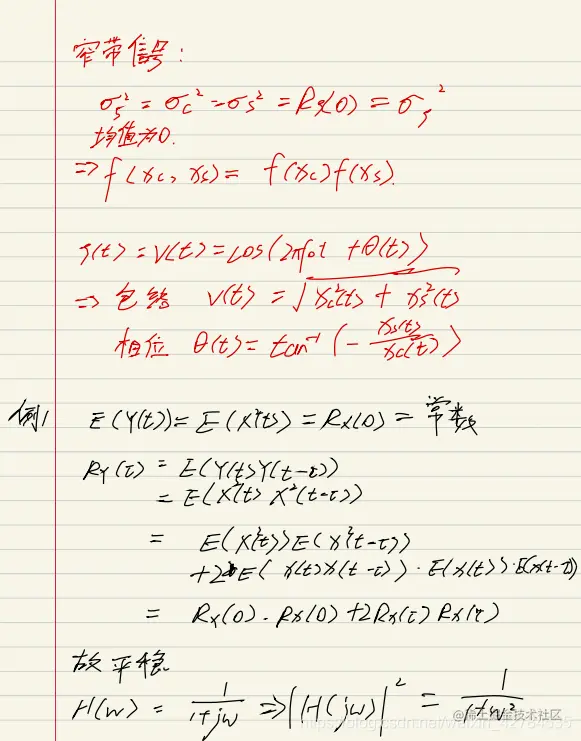 窄带信号:
σζ² = σc² = σs² = Rζ(0) = σζ²
均值为0.
⇒ f(xc, xs) = f(xc)f(xs).
ζ(t) = V(t) = cos(2πf₀t + θ(t))
⇒ 包络 V(t) = √(xc²(t) + xs²(t))
相位 θ(t) = tan⁻¹(- xs(t)/xc(t))
例1 E(Y(t)) = E(X²(t)) = Rx(0) = 常数
RY(τ) = E(Y(t)Y(t-τ))
= E(X²(t) X²(t-τ))
= E(X²(t))E(X²(t-τ))
+2E(X(t)X(t-τ))·E(X(t))·E(X(t-τ))
= Rx(0)·Rx(0)+2Rx(τ)Rx(τ)
故平稳
H(w) = 1/(1+jw) ⇒ |H(jw)|² = 1/(1+w²)
@稀土掘金技术社区